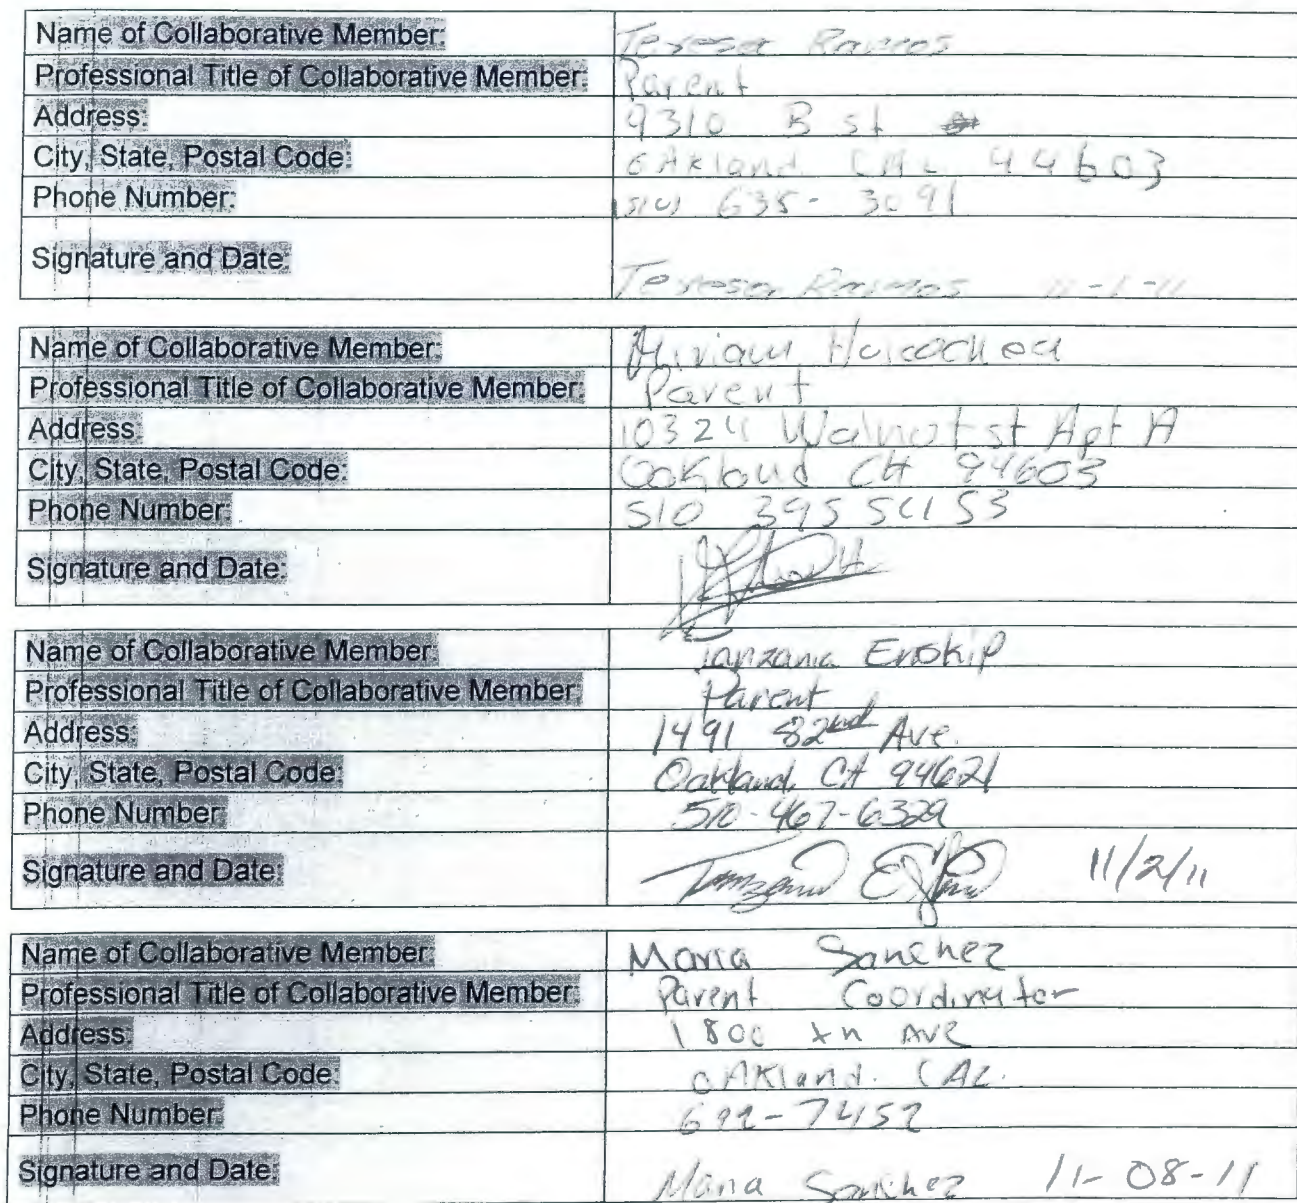 Name of Collaborative Member: Teresa Ramos
Professional Title of Collaborative Member: Parent
Address: 9310 B st
City, State, Postal Code: OAkland CAL 94603
Phone Number: (510) 635-3091
Signature and Date: Teresa Ramos 11-1-11
Name of Collaborative Member: Miriam
Professional Title of Collaborative Member: Parent
Address: 10324 Walnot st Apt A
City, State, Postal Code: Oakland CA 94603
Phone Number: 510 395 5453
Signature and Date:
Name of Collaborative Member: Tanzania Enskip
Professional Title of Collaborative Member: Parent
Address: 1491 82nd Ave.
City, State, Postal Code: Oakland, CA 94621
Phone Number: 510-467-6329
Signature and Date: 11/2/11
Name of Collaborative Member: Maria Sanchez
Professional Title of Collaborative Member: Parent Coordinator
Address: 1800 Ave
City, State, Postal Code: OAKland. CAL.
Phone Number: 692-7452
Signature and Date: Maria Sanchez 11-08-11